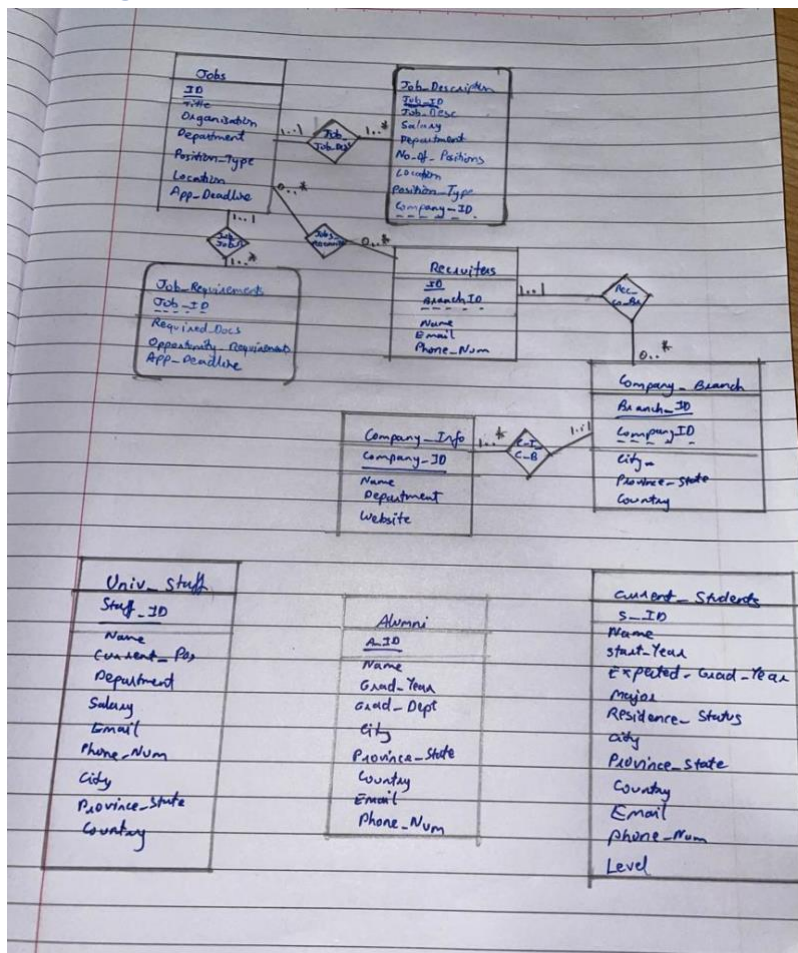 Jobs
ID
Title
Organisation
Department
Position_Type
Location
App_Deadline
1..1
Job_
Job_Des
1..*
Job_Description
Job_ID
Job_Desc
Salary
Department
No_Of_Positions
Location
Position_Type
Company_ID
0..*
1..1
Jobs
0..*
1..*
Job_Requirements
Job_ID
Required_Docs
Opportunity_Requirement
App_Deadline
Recruiters
ID
Branch ID
Name
Email
Phone_Num
1..1
Rec_
Co_Br
0..*
Company_Branch
Branch_ID
Company ID
City
Province_State
Country
Company_Info
Company_ID
Name
Department
Website
1..*
C-I_
C-B
1..1
Univ_Staff
Staff_ID
Name
Current_Pos
Department
Salary
Email
Phone_Num
City
Province_State
Country
Alumni
A_ID
Name
Grad_Year
Grad_Dept
City
Province_State
Country
Email
Phone_Num
Current_Students
S_ID
Name
Start_Year
Expected_Grad_Year
Major
Residence_Status
City
Province_State
Country
Email
Phone_Num
Level